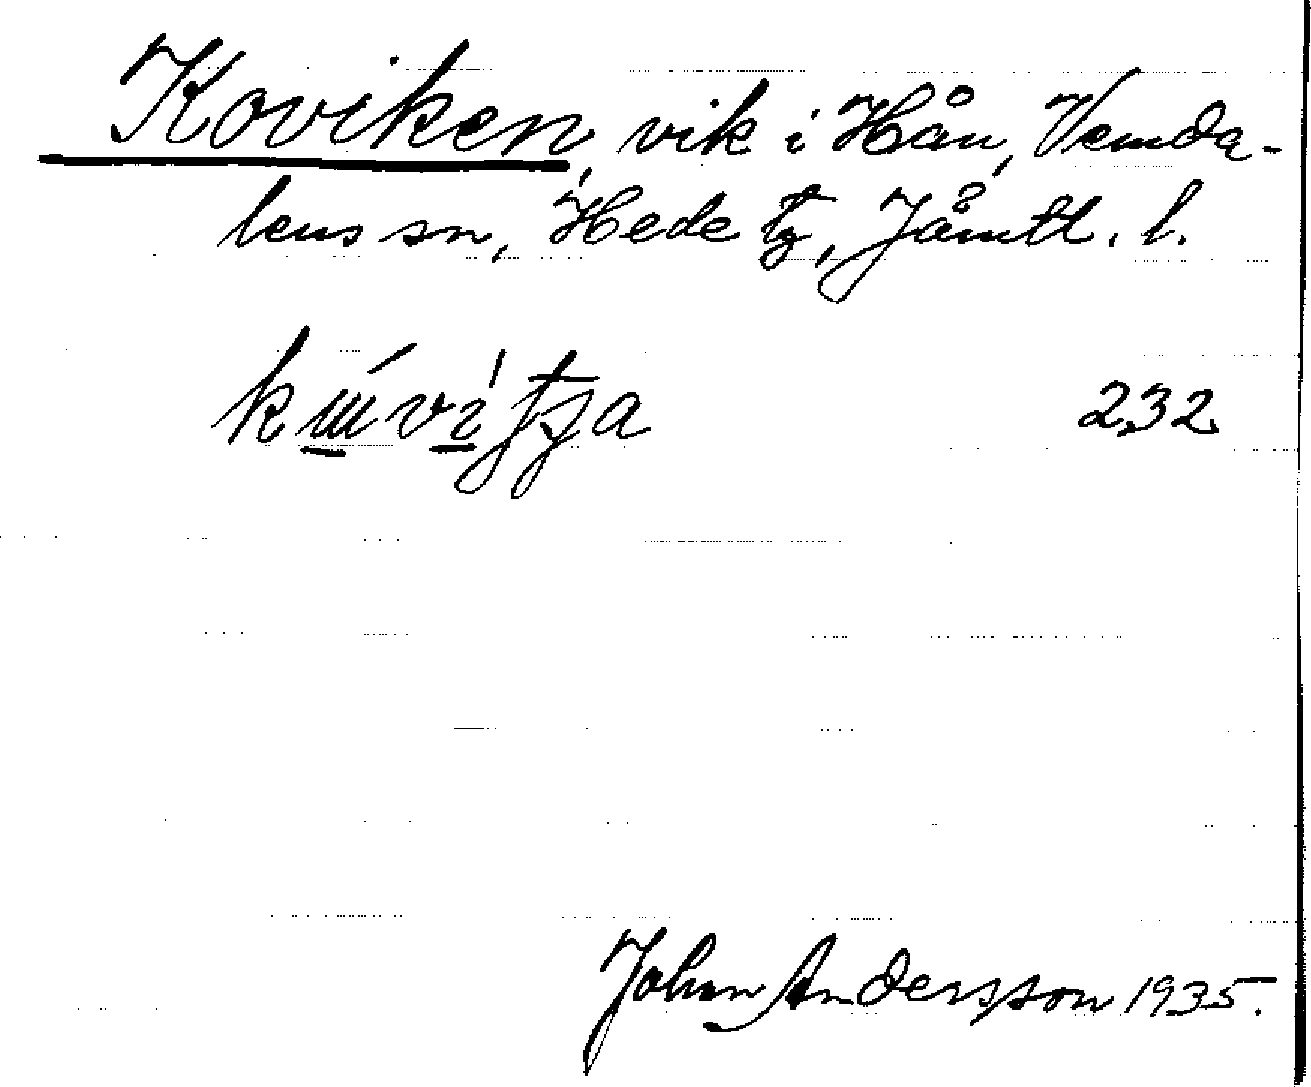 Koviken, vik i Hån, Vemda-
lens sn, Hede tg, Jämtl. l.
232
Johan Andersson 1935.